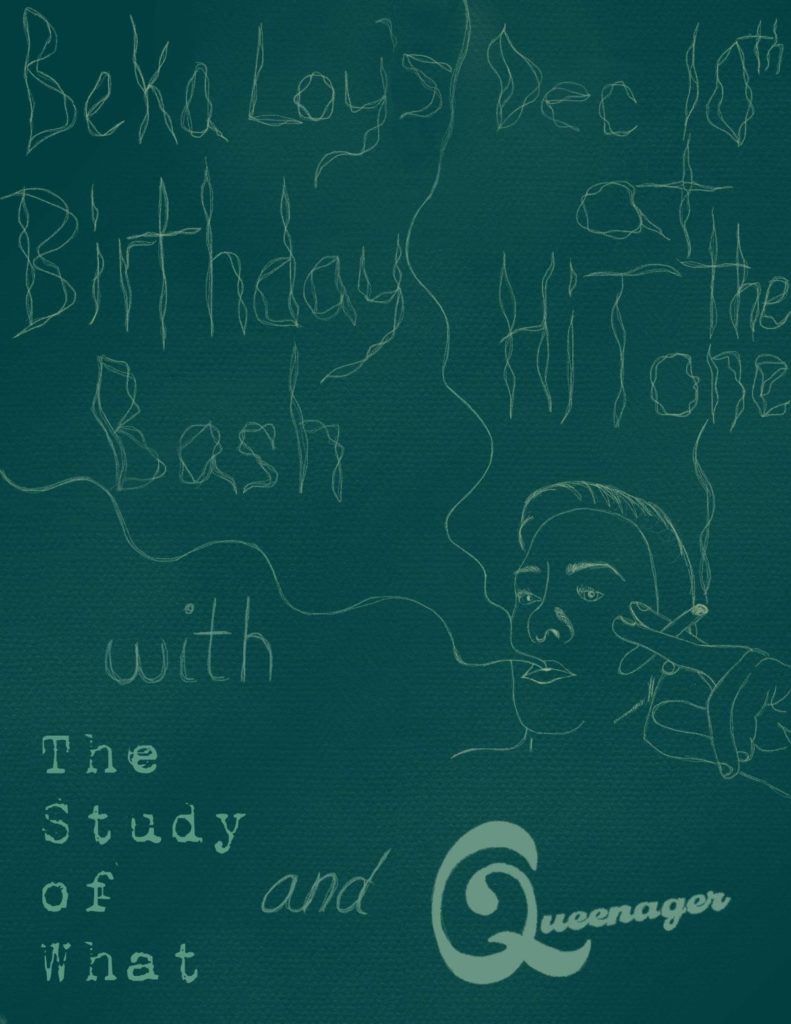 Beka Loy's
Birthday
Bash
Dec 10th
at
The
HiTone
with
The
Study
of
What
and
Queenager